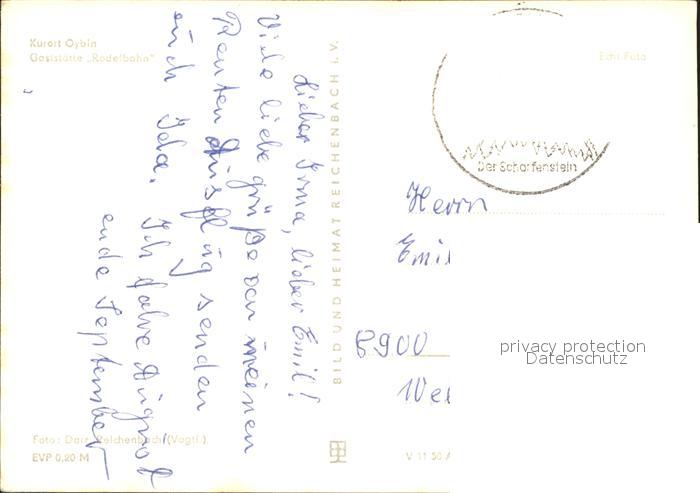 Kurort Oybin
Gaststätte „Rodelbahn“
Echt Foto
Lieber Irma, lieber Emil!
Viele liebe grüße von meinen
Renten Ausflug senden
euch Ida. Ich fahre
ende September
BILD UND HEIMAT REICHENBACH I. V.
Der Scharfenstein
Herrn
Emil
8900
privacy protection
Datenschutz
Foto: Darr, Reichenbach (Vogtl.)
EVP 0,20 M
V 11 50 A